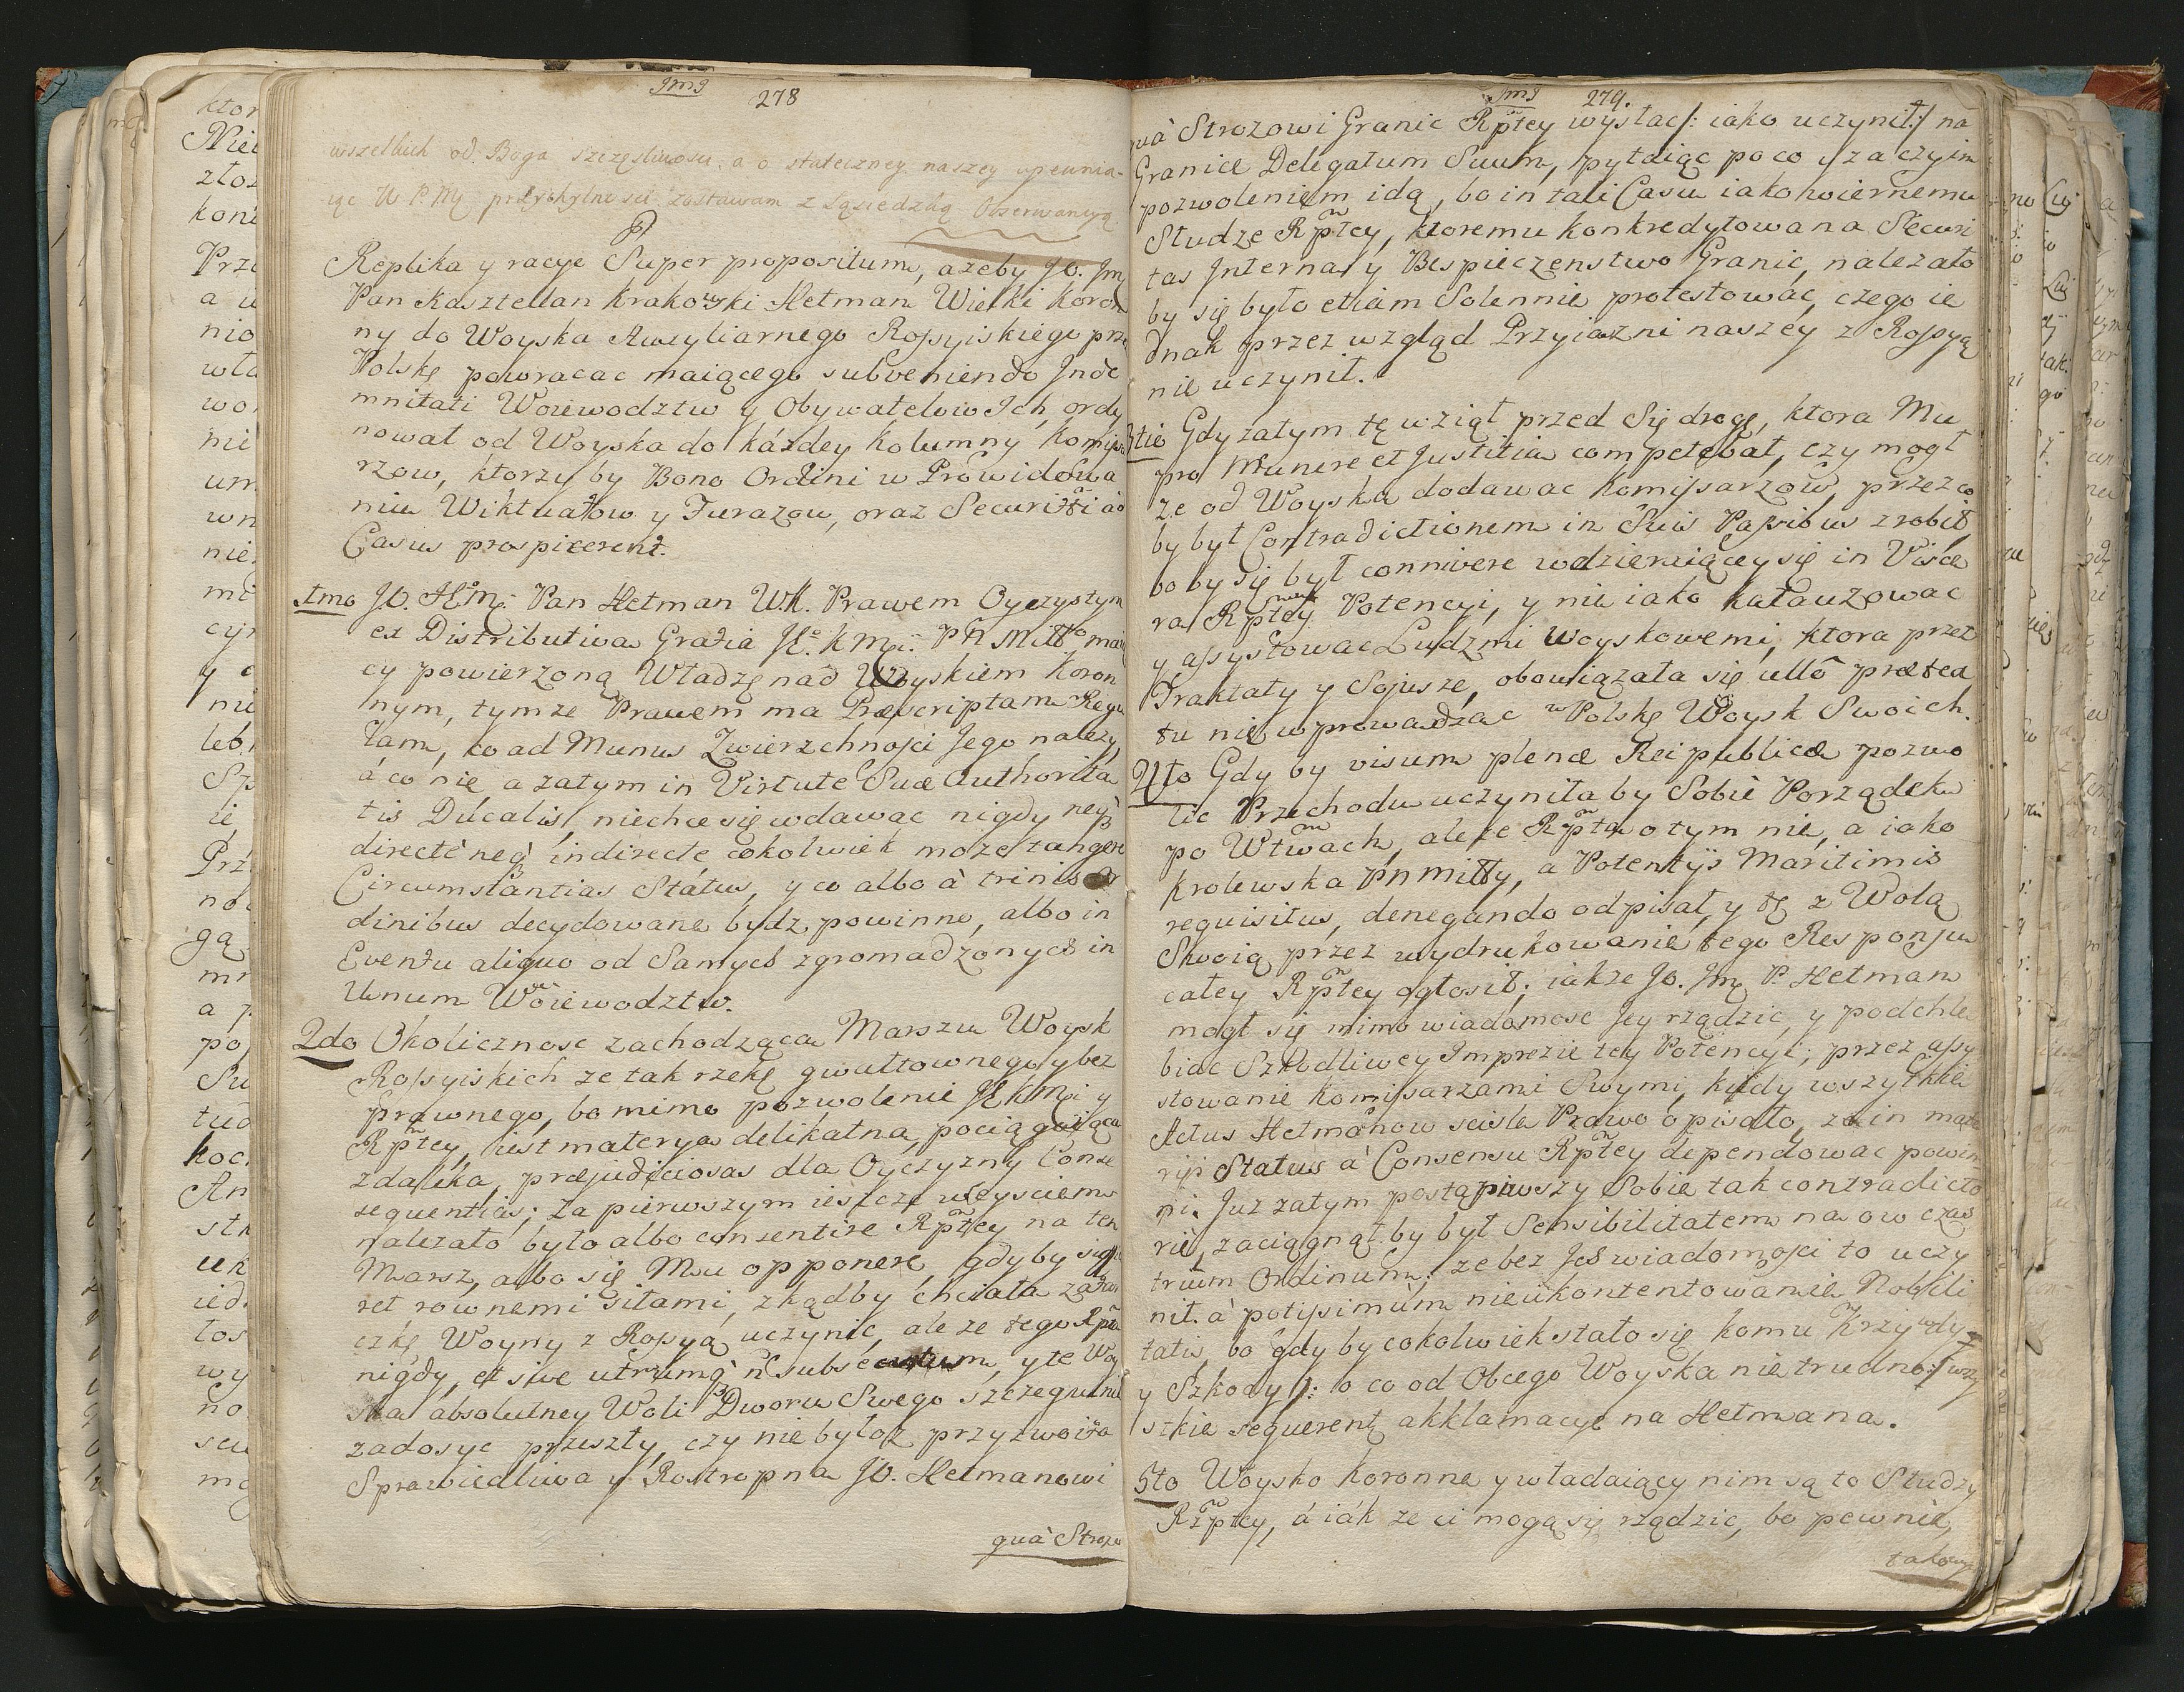 Jmj 278
wszelkich od Boga szczęśliwości a o stateczney naszey upewnia-
iąc W P. Mę przychylności zostawam z Sąsiedzką Obserwancyą
Replika y racye Super propositum, ażeby JO. Jmć
Pan Kasztellan Krakowski Hetman Wielki Koron
ny do Woyska Auxyliarnego Rossyiskiego prze
Polskę powracac maiącego subveniendo Inde
mnitati Woiewodztw y Obywatelow Ich, ordy
nował od Woyska do każdey Kolumny Komissa
rzow, ktorzy by Bono Ordini w Prowidowa
niu Wiktuałow y Furazow, oraz Securitti ad
Casus prospicerent.
1mo JO. Jmć Pan Hetman W.K. Prawem Oyczystym
ex Distributiva Gratia JK. Mci Pn Miłłgo maią
cy powierzoną Władzę nad Woyskiem Koron
nym, tymze Prawem ma Præscriptam Regu
łam, co ad Munus Zwierzchności Jego należy,
á co nie, a zatym in Virtute Suæ Authorita
tis Ducalis, niechce się wdawac nigdy neq3
directè neq3 indirecte cokolwiek może tangere
Circumstantias Status, y co albo à trinis or
dinibus decydowane bydz powinno, albo in
Eventu aliquo od Samych zgromadzonych in
Unum Woiewodztw.
2do Okolicznosc zachodząca Marszu Woysk
Rossyiskich ze tak rzekę gwałtownego y bez
prawnego, bo mimo pozwolenie JK Mci y
Rpłtey, iest materya delikatna, pociągaiąca
zdaleka, præjudiciosas dla Oyczyzny Conse
sequentias; Za pierwszym ieszcze weysciem
należało było albo consentire Rpłtey na ten
Marsz, albo się Mu opponere, gdyby się
ret rownemi siłami, zkądby chciała
czkę Woyny z Rossyą uczynic, ale ze tego Rpta
nigdy, et sive utrumq3 n subsecutum, y te Woy
ska absolutney Woli Dworu Swego szczegulnie
zadosyc przeszły, czy nie byłoż przyzwoita
Sprawiedliwa y Rostropna JO. Hetmanowi
quà Strożo
Jmj 279.
quà Strozowi Granic Rpłtey wysłac /: iako uczynił :/ na
Granice Delegatum Suum, pytaiąc po co y za czyim
pozwoleniem idą, bo in tali Casu iako wiernemu
Słudze Rpłtey, ktoremu konkredytowana Securi
tas Interna y Bespieczenstwo Granic, należało
by się było etiam Solennie protestowac, czego ie
dnak przez wzgląd Przyiazni naszey z Rossyą
nie uczynił.
3tio Gdy zatym tę wziął przed Się drogę, ktora Mu
pro Munere et Justitia competebat, czy mogł
że od Woyska dodawac Komissarzow, przez co
by był Contradictionem in Suis Passibus zrobił
bo by się był connivere wdzieraiącey się in Visce
ra Rpłtey Potencyi, y nie iako kałauzowac
y assystowac Ludzmi Woyskowemi, ktora przez
Traktaty y Sojusze, obowiązała się ullô prætex
tu nie wprowadzac w Polskę Woysk Swoich.
4to Gdy by visum plenæ Reipublicæ pozwo
lic Przechodu uczyniła by Sobie Porządek
po Wtwach, ale ze Rpta o tym nie, a iako
Krolewska Pn Miłły, a Potentijs Maritimis
requisitus, denegando odpisał, y tę z Wolą
Swoią przez wydrukowanie tego Responsu
całey Rpłtey ogłosił; iakze JO. Jmć P. Hetman
mogł się mimo wiadomosc Jey rządzic, y podchle
biac Szkodliwey Imprezie tey Potencyi; przez assy
stowanie Komissarzami Swymi, kiedy wszytkie
Actus Hetmanow scisle Prawo opisało, ze in mate
rijs Status à Consensu Rpłtey dependowac powin
ni. Juz zatym postąpiwszy Sobie tak contradicto
riè, zaciągnął by był Sensibilitatem na ow czas
trium Ordinum, ze bez Ich wiadomosci to uczy
nił. à potissimùm nieukontentowanie Nobili
tatis, bo gdy by cokolwiek stało się komu Krzywdy
y Szkody /: o co od Obcego Woyska nie trudno :/ wszy
stkie sequerent akklamacye na Hetmana.
5to Woysko Koronne y władaiący nim są to Słudzy
Rzpłtey, á iák ze ci mogą się rządzic, bo pewnie,
takowy